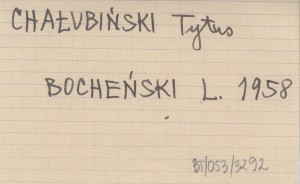 CHAŁUBIŃSKI Tytus
BOCHEŃSKI L. 1958
BT/053/3292